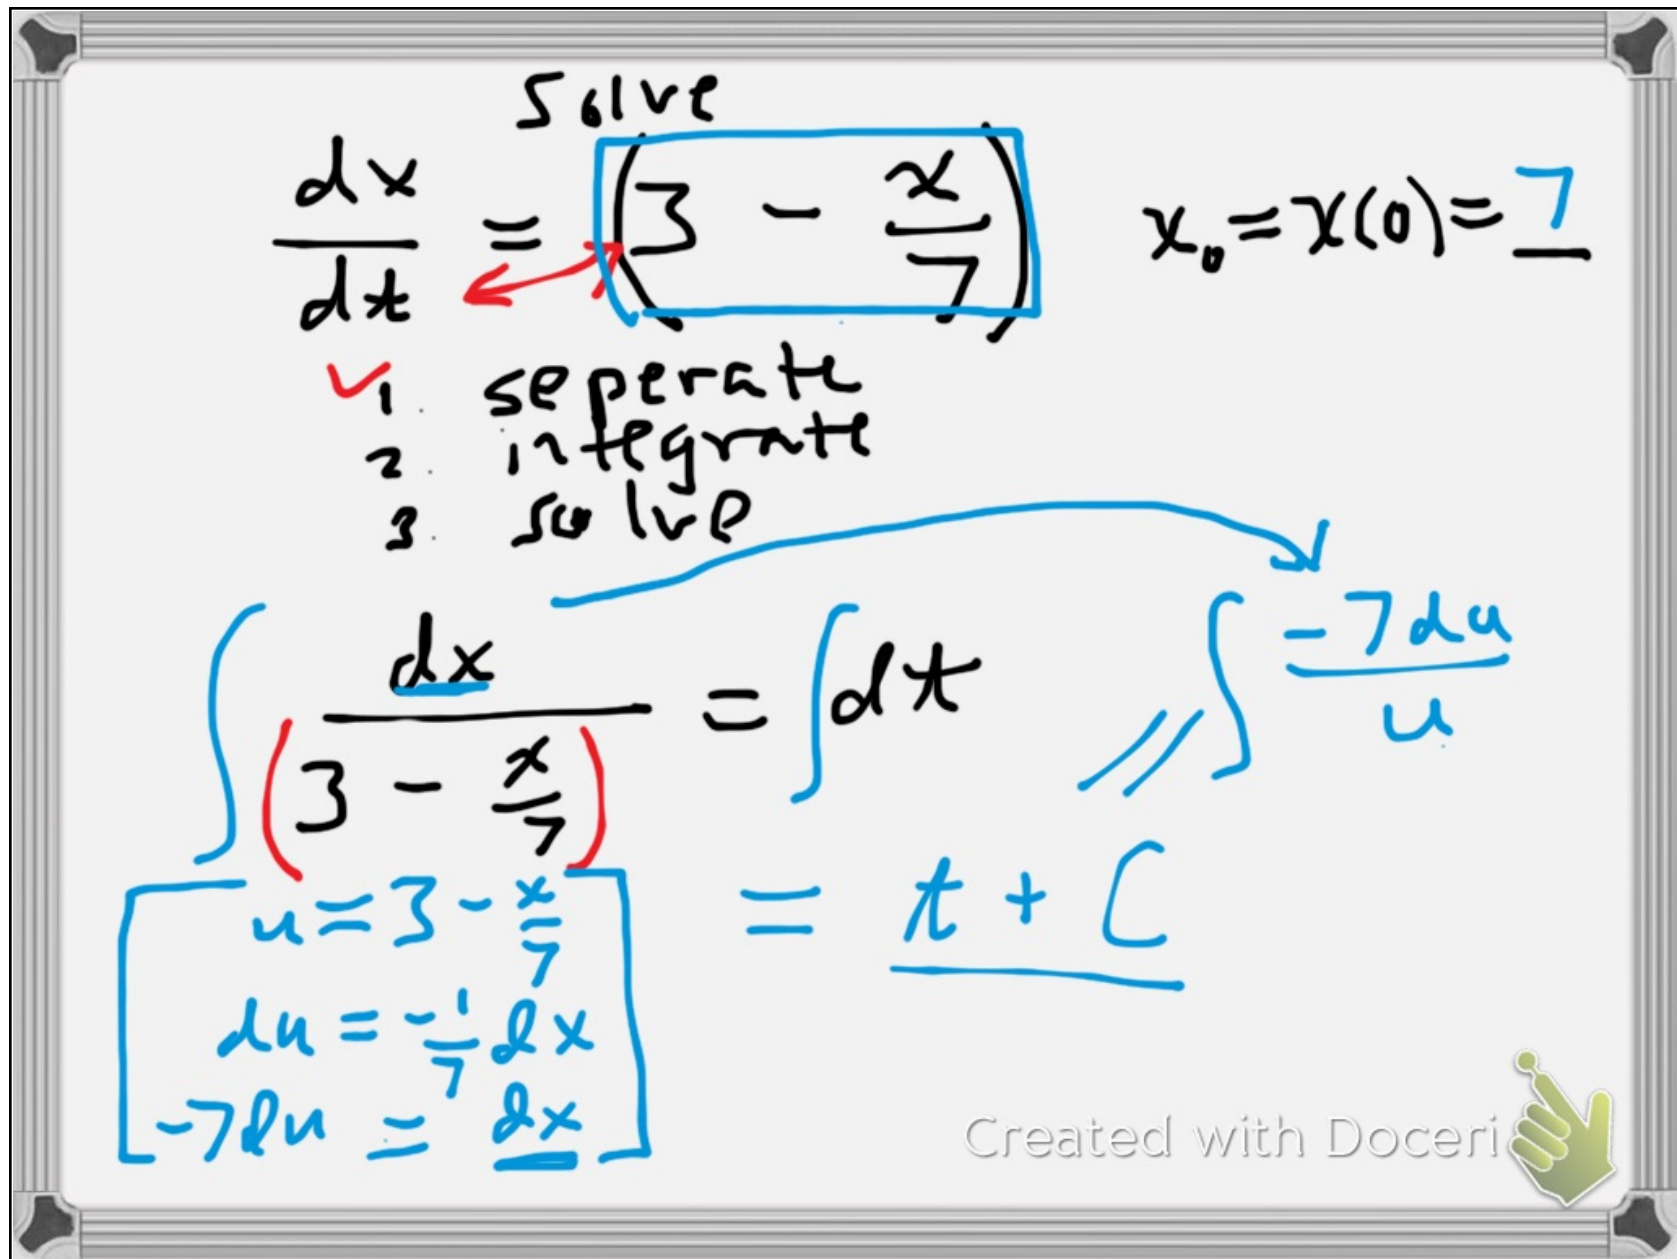 Solve
dx/dt = (3 - x/7) x₀ = x(0) = 7
✓1. seperate
2. integrate
3. solve
∫ dx/(3 - x/7) = ∫ dt // ∫ -7du/u
= t + C
u = 3 - x/7
du = -1/7 dx
-7du = dx
Created with Doceri